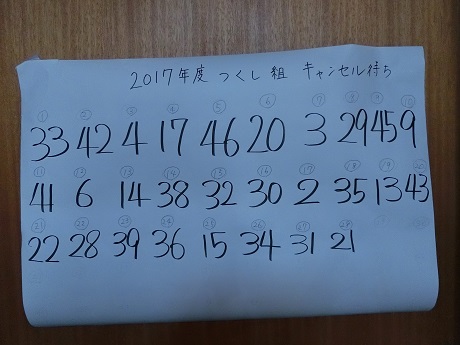 2017年度 つくし組 キャンセル待ち
① ② ③ ④ ⑤ ⑥ ⑦ ⑧ ⑨ ⑩
33 42 4 17 46 20 3 29 45 9
⑪ ⑫ ⑬ ⑭ ⑮ ⑯ ⑰ ⑱ ⑲ ⑳
41 6 14 38 32 30 2 35 13 43
㉑ ㉒ ㉓ ㉔ ㉕ ㉖ ㉗ ㉘
22 28 39 36 15 34 31 21